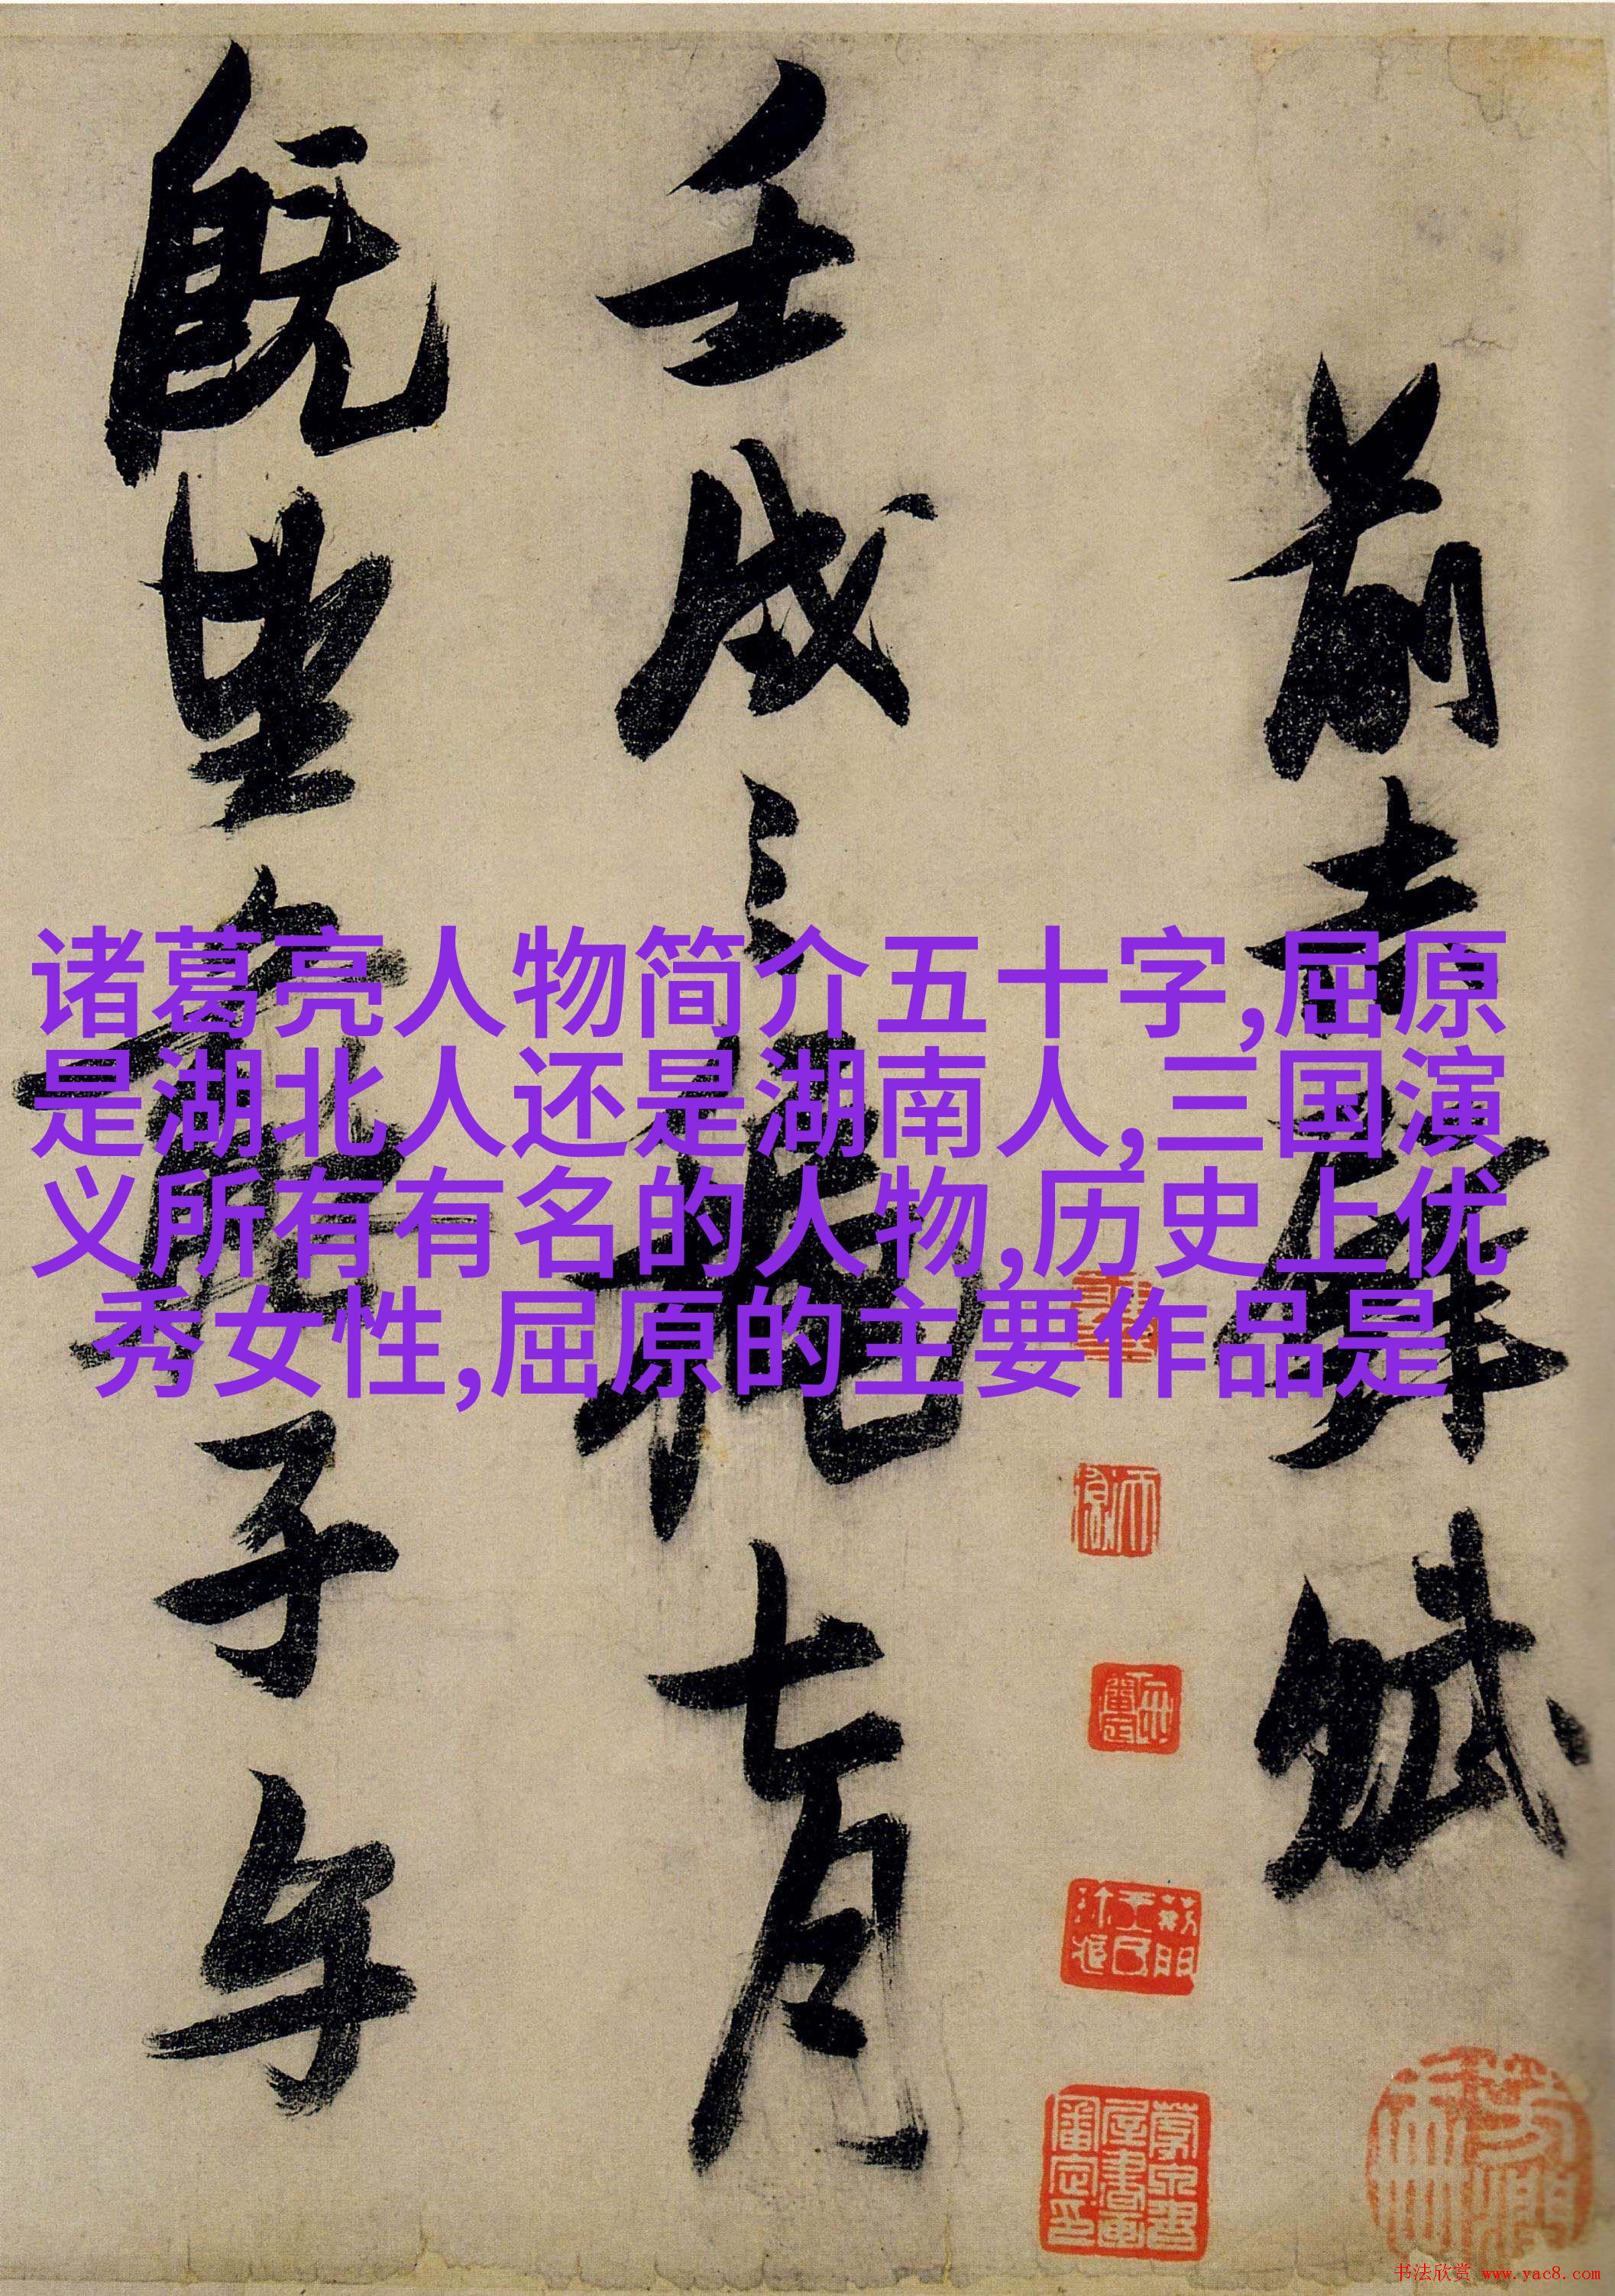 前赤壁賦
壬戌之秋七月
既望蘇子与
诸葛亮人物简介五十字,屈原
是湖北人还是湖南人,三国演
义所有有名的人物,历史上优
秀女性,屈原的主要作品是
书法欣赏 www.yac8.com